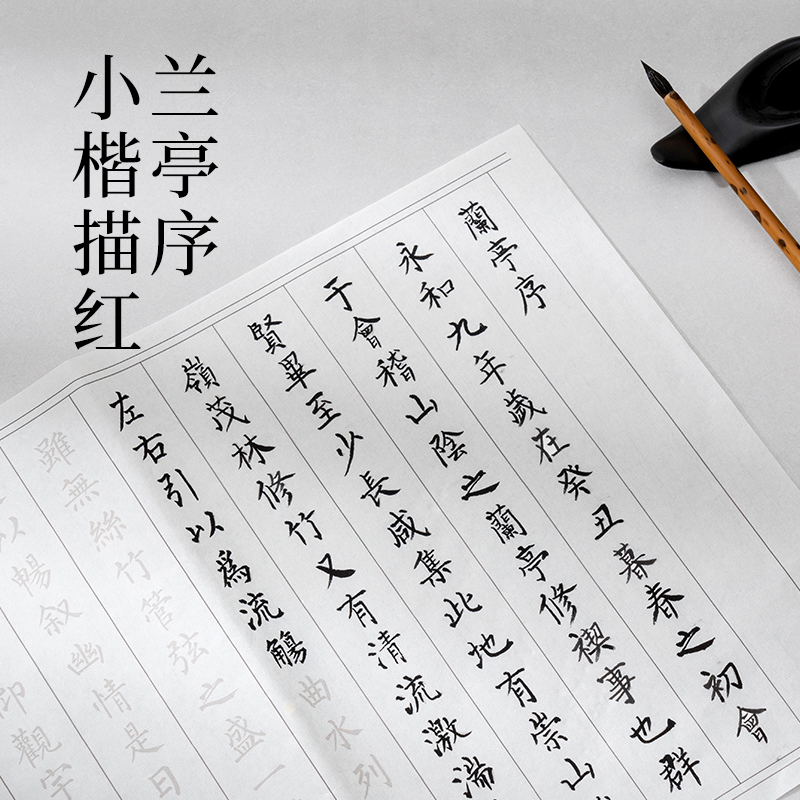 兰亭序
小楷描红
蘭亭序
永和九年歲在癸丑暮春之初會
于會稽山陰之蘭亭修禊事也群
賢畢至少長咸集此地有崇山
嶺茂林修竹又有清流激湍
左右引以為流觴曲水列
雖無絲竹管弦之盛一
以暢叙幽情是日
仰觀宇